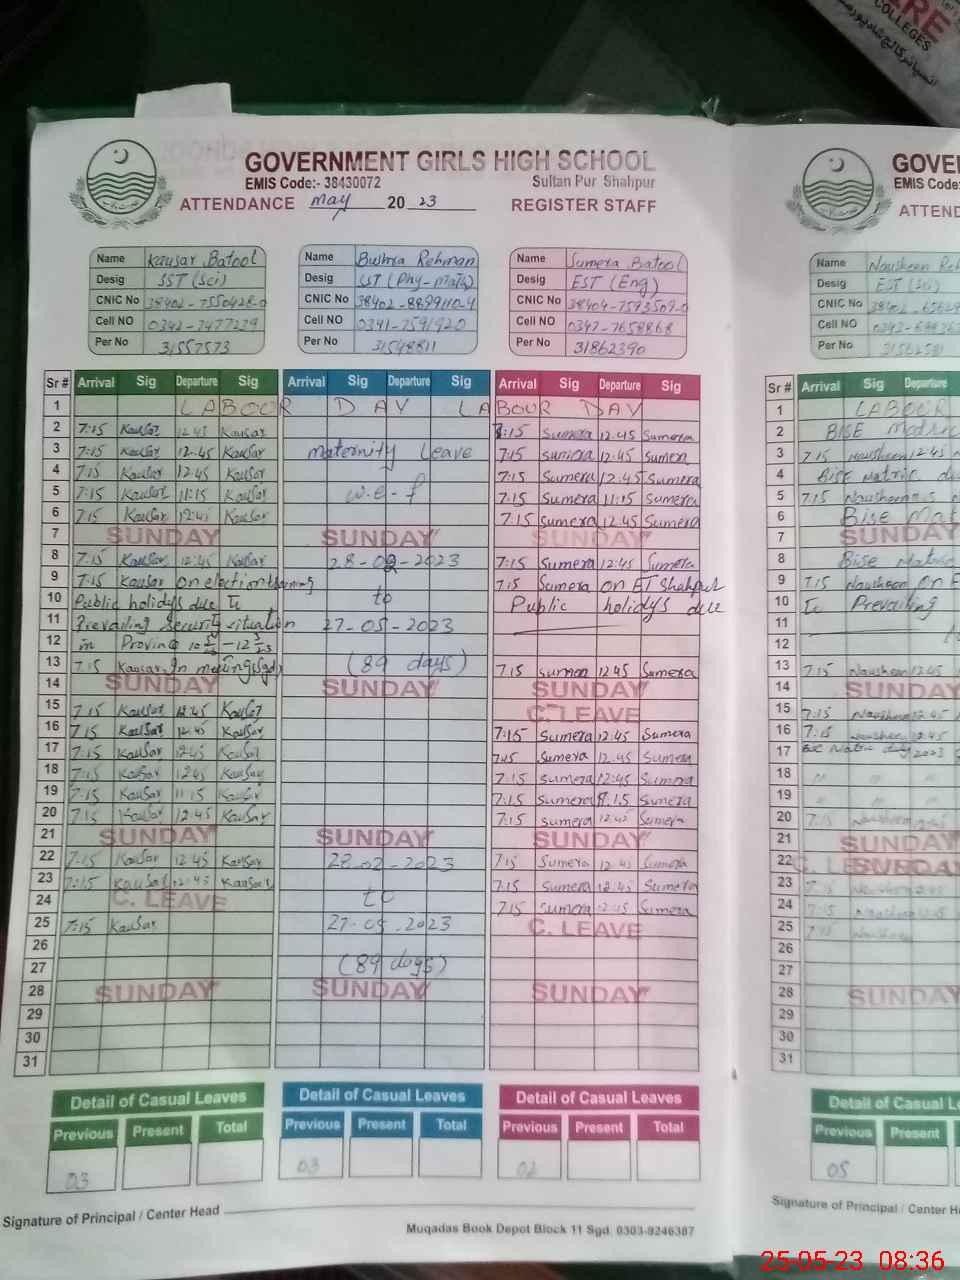 ERE
COLLEGES
GOVERNMENT GIRLS HIGH SCHOOL
EMIS Code:- 38430072 Sultan Pur Shahpur
ATTENDANCE may 2023 REGISTER STAFF
Name Kausar Batool
Desig SST (Sci)
CNIC No
Cell NO 0342-7477239
Per No 31557573
Name Bushra Rehman
Desig SST (Phy-Math)
CNIC No 38402-8899110-4
Cell NO 0341-7591920
Per No 31548811
Name Sumera Batool
Desig EST (Eng)
CNIC No 38404-7593509-0
Cell NO 0347-7658868
Per No 31862390
Sr # Arrival Sig Departure Sig Arrival Sig Departure Sig Arrival Sig Departure Sig
1 LABOUR DAY LABOUR DAY
2 7:15 Kausar 12:45 Kausar 7:15 Sumera 12:45 Sumera
3 7:15 Kausar 12:45 Kausar maternity Leave 7:15 Sumera 12:45 Sumera
4 7:15 Kausar 12:45 Kausar 7:15 Sumera 12:45 Sumera
5 7:15 Kausar 11:15 Kausar w.e-f 7:15 Sumera 11:15 Sumera
6 7:15 Kausar 12:45 Kausar 7:15 Sumera 12:45 Sumera
7 SUNDAY SUNDAY SUNDAY
8 7:15 Kausar 12:45 Kausar 28-02-2023 7:15 Sumera 12:45 Sumera
9 7:15 Kausar on election training 7:15 Sumera on ET Shahpur
10 Public holidys due To to Public holidys due
11 Prevailing Security situation 27-05-2023
12 in Province
13 7:15 Kausar In meeting (sgd) (89 days) 7:15 Sumera 12:45 Sumera
14 SUNDAY SUNDAY SUNDAY
15 7:15 Kausar 12:45 Kausar C. LEAVE
16 7:15 Kausar 12:45 Kausar 7:15 Sumera 12:45 Sumera
17 7:15 Kausar 12:45 Kausar 7:15 Sumera 12:45 Sumera
18 7:15 Kausar 12:45 Kausar 7:15 Sumera 12:45 Sumera
19 7:15 Kausar 11:15 Kausar 7:15 Sumera Sumera
20 7:15 Kausar 12:45 Kausar 7:15 Sumera 12:45 Sumera
21 SUNDAY SUNDAY SUNDAY
22 7:15 Kausar 12:45 Kausar 28-02-2023 7:15 Sumera 12:45 Sumera
23 7:15 Kausar 12:45 Kausar 7:15 Sumera 12:45 Sumera
24 C. LEAVE to 7:15 Sumera 12:45 Sumera
25 7:15 Kausar 27-05-2023 C. LEAVE
26
27 (89 days)
28 SUNDAY SUNDAY SUNDAY
29
30
31
Detail of Casual Leaves Detail of Casual Leaves Detail of Casual Leaves
Previous Present Total Previous Present Total Previous Present Total
03 03 02
Signature of Principal / Center Head
Muqadas Book Depot Block 11 Sgd. 0303-9246387
GOVE
EMIS Code:
ATTEND
Name Nousheen Reh
Desig EST (Sci)
CNIC No
Cell NO
Per No
Sr # Arrival Sig Departure
1 LABOUR
2 BISE Matric
3 7:15 Nausheen 12:45
4 BISE Matric
5 7:15 Nausheen
6 Bise Mat
7 SUNDAY
8 Bise Matric
9 7:15 Nausheen on E
10 To Prevailing
11
12
13 7:15 Nausheen 12:45
14 SUNDAY
15 7:15 Nausheen 12:45
16 7:15 Nausheen 12:45
17 Matric duty 2023
18 " " "
19 " " "
20 7:15 Nausheen 12:45
21 SUNDAY
22 C. LEAVE SUNDAY
23 7:15 Nausheen 12:45
24 7:15 Nausheen 12:45
25 7:15 Nausheen
26
27
28 SUNDAY
29
30
31
Detail of Casual L
Previous Present
05
Signature of Principal / Center H
25-05-23 08:36